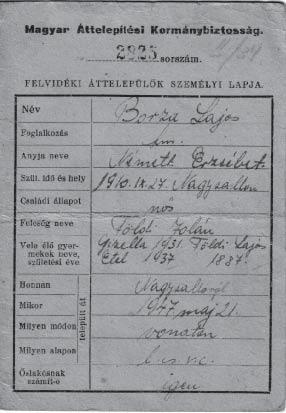 Magyar Áttelepítési Kormánybiztosság.
2925 sorszám.
FELVIDÉKI ÁTTELEPÜLŐK SZEMÉLYI LAPJA.
Név Borza Lajos
Foglalkozás
Anyja neve Németh Erzsébet
Szül. idő és hely 1910. IX. 27. Nagysalló
Családi állapot nős
Feleség neve Földi
Vele élő gyer- Gizella 1931. Földi Lajos
mekek neve, Etel 1937 1887.
születési éve
Honnan Nagysallóról
Mikor 1947 máj 21.
Milyen módon vonaton
Milyen alapon
települt át
Őslakósnak igen
számít-e